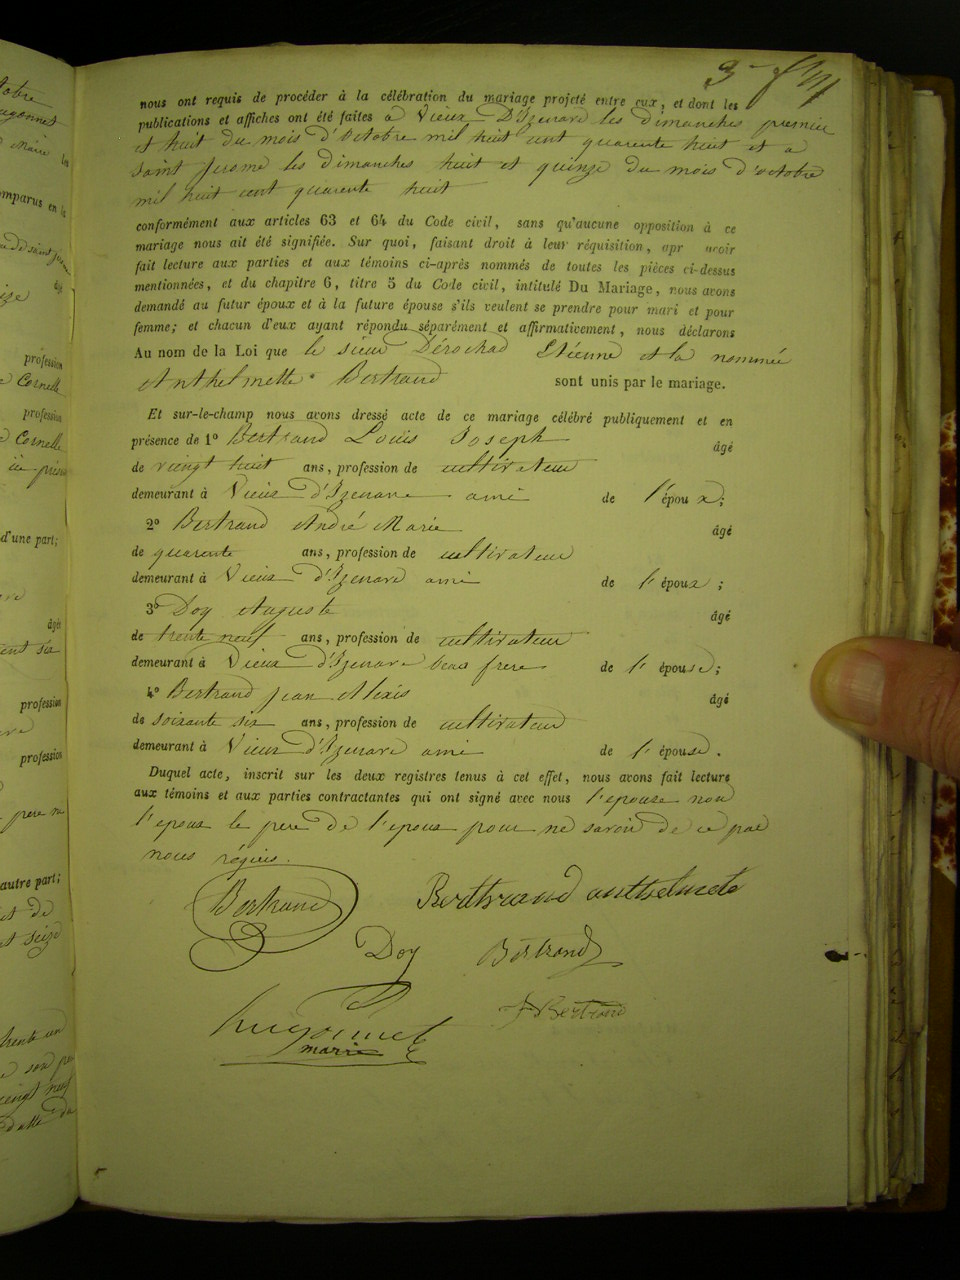 tobre
ugonnet
maire les
omparus en la
de saint jerome
âgé
ize
profession
Cornelle
profession
Cornelle
d'une part;
âgé
ent six
profession
profession
pere
autre part;
et de
et seize
trente un
son
vingt neuf
3
nous ont requis de procéder à la célébration du mariage projeté entre eux, et dont les
publications et affiches ont été faites a Vieux D'Izenave les dimanches premier
et huit du mois d'octobre mil huit cent quarente huit et a
saint Jerome les dimanches huit et quinze du mois d'octobre
mil huit cent quarente huit
conformément aux articles 63 et 64 du Code civil, sans qu'aucune opposition à ce
mariage nous ait été signifiée. Sur quoi, faisant droit à leur réquisition, apr avoir
fait lecture aux parties et aux témoins ci-après nommés de toutes les pièces ci-dessus
mentionnées, et du chapitre 6, titre 5 du Code civil, intitulé Du Mariage, nous avons
demandé au futur époux et à la future épouse s'ils veulent se prendre pour mari et pour
femme; et chacun d'eux ayant répondu séparément et affirmativement, nous déclarons
Au nom de la Loi que le sieur Dérochad Etienne et la nommée
Anthelmette Bertrand sont unis par le mariage.
Et sur-le-champ nous avons dressé acte de ce mariage célébré publiquement et en
présence de 1º Bertrand Louis Joseph âgé
de vingt huit ans, profession de cultivateur
demeurant à Vieux d'Izenave ami de l'époux;
2º Bertrand André Marie âgé
de quarente ans, profession de cultivateur
demeurant à Vieux d'Izenave ami de l'époux;
3º Doy Auguste âgé
de trente neuf ans, profession de cultivateur
demeurant à Vieux d'Izenave beau frere de l'épouse;
4º Bertrand Jean Alexis âgé
de soixante six ans, profession de cultivateur
demeurant à Vieux d'Izenave ami de l'épouse.
Duquel acte, inscrit sur les deux registres tenus à cet effet, nous avons fait lecture
aux témoins et aux parties contractantes qui ont signé avec nous l'epouse non
l'epoux le pere de l'epoux pour ne savoir de ce par
nous réquis.
Bertrand Berthrand anthelmete
Doy Bertrand
hugonnet J Bertrand
maire